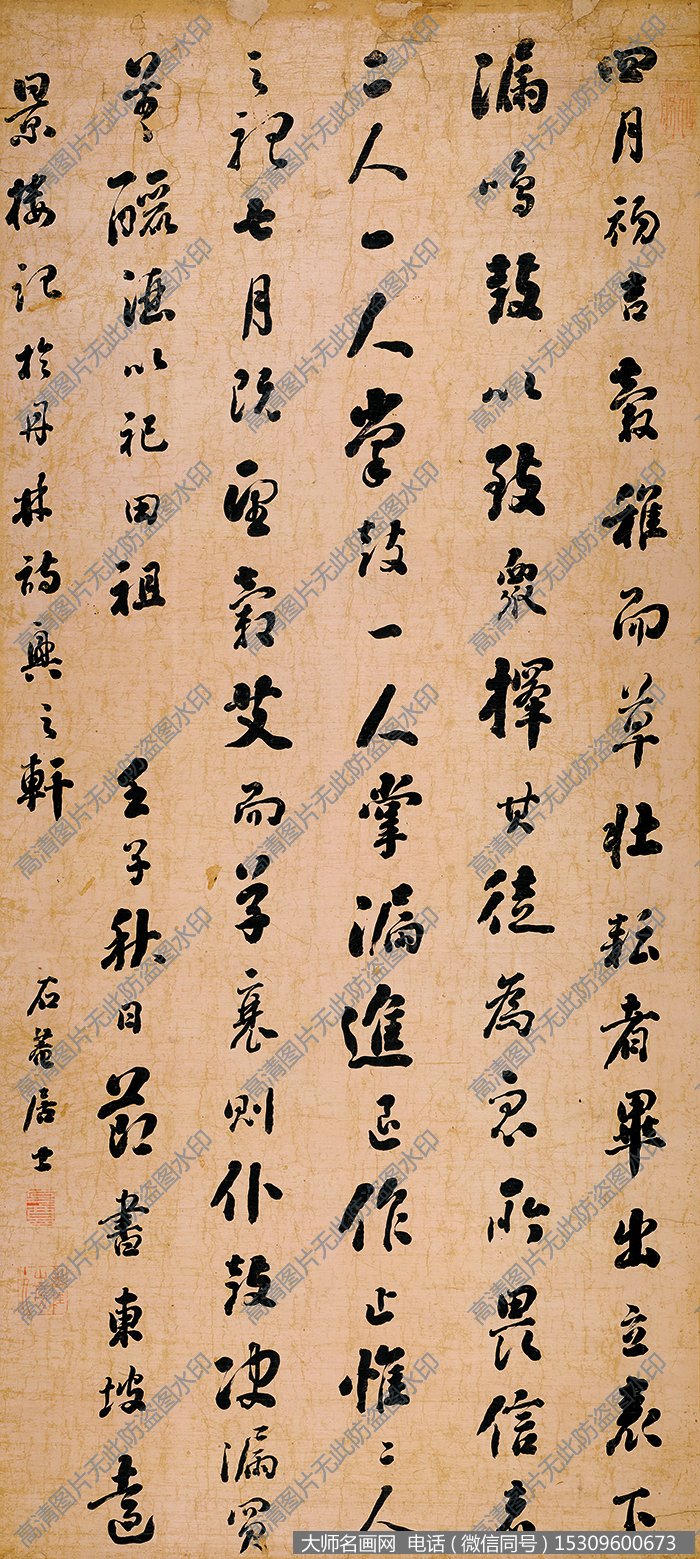 四月初吉穀稚而草壮耘者畢出立表下
漏鳴鼓以致衆擇其徒為衆所畏信者
二人一人掌鼓一人掌漏進退作止惟二人
之聽七月既望穀艾而草衰則仆鼓决漏買
羊釃酒以祀田祖 壬子秋日節書東坡遠
景樓記於丹林詩興之軒
石菴居士
高清图片无此防盗图水印
大师名画网 电话（微信同号）15309600673